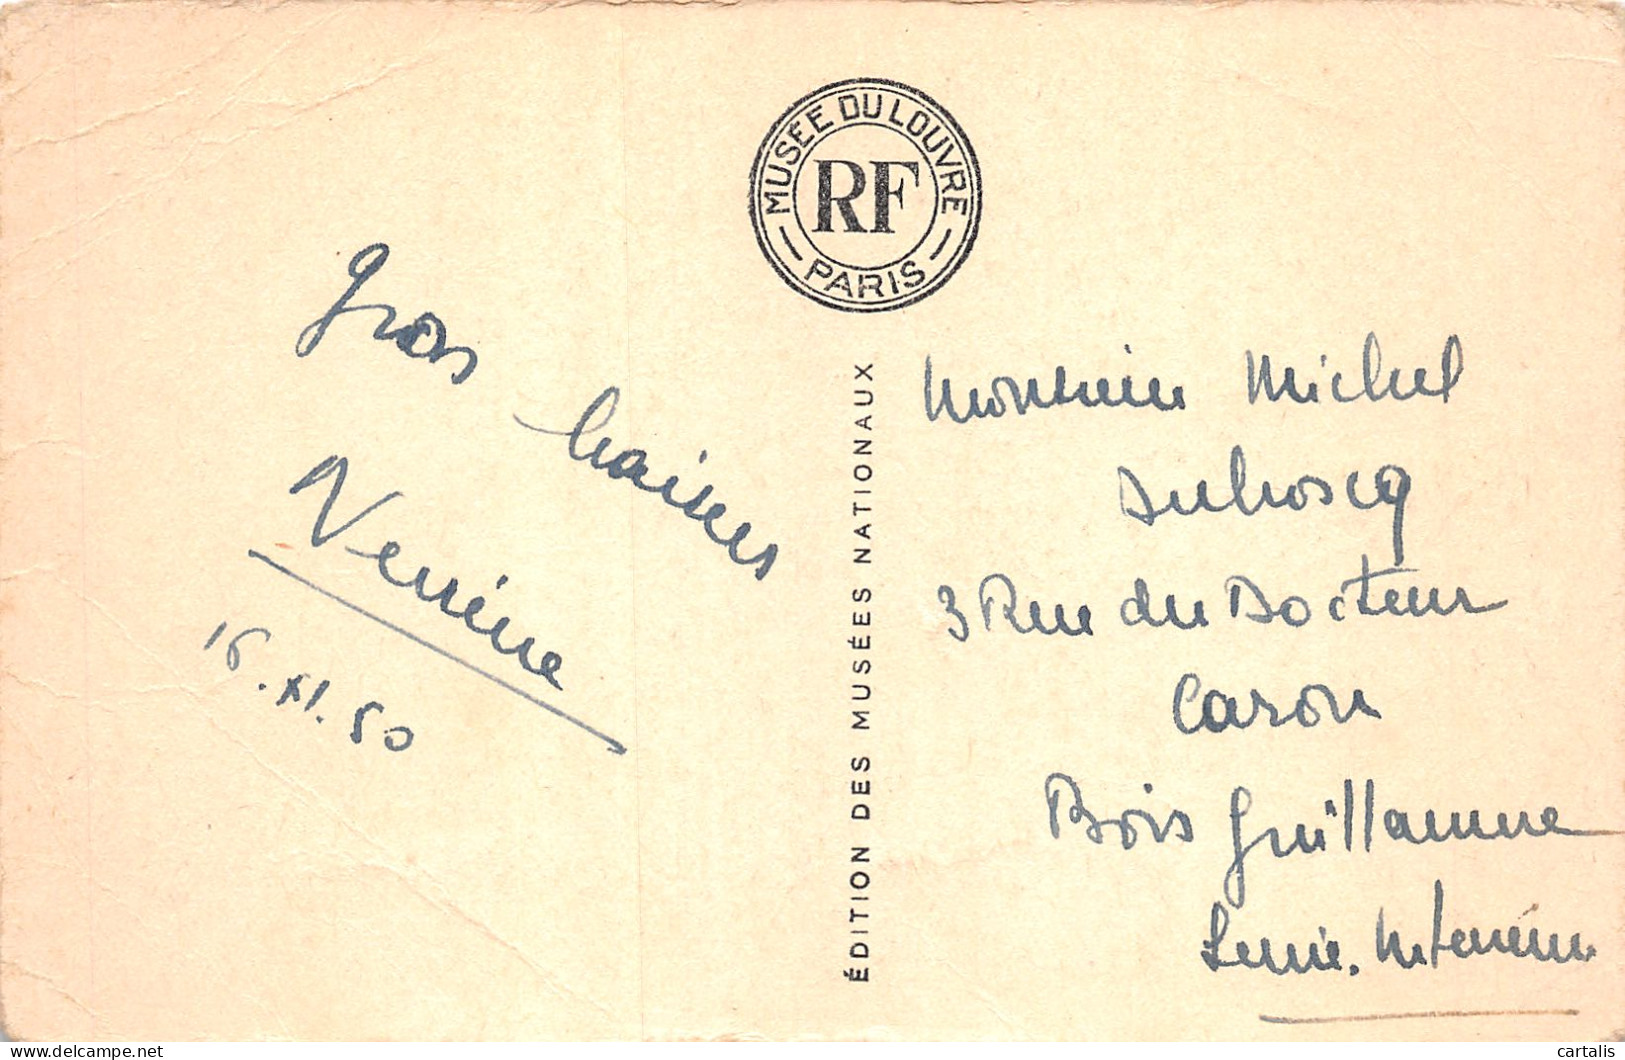 MUSÉE DU LOUVRE
RF
PARIS
Gros baisers
16.XI.50
ÉDITION DES MUSÉES NATIONAUX
Monsieur Michel
Duboscq
3 Rue du Docteur
Caron
Bois Guillaume
Seine. Inférieure
delcampe.net
cartalis